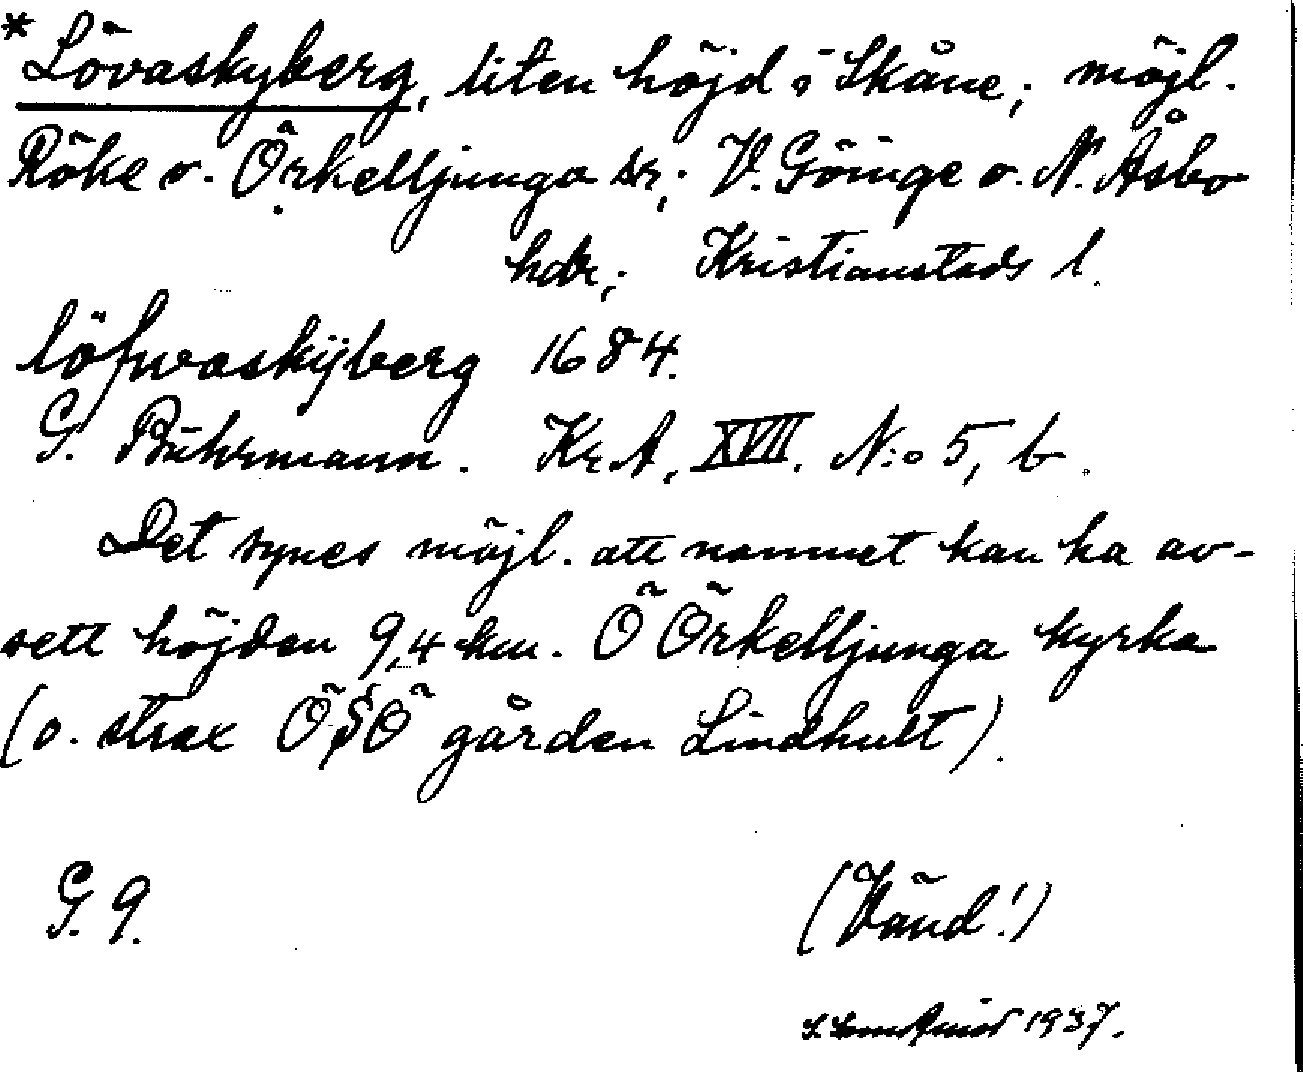 *Lövaskyberg, liten höjd i Skåne; möjl.
Röke o. Örkelljunga snr; V. Göinge o. N. Åsbo
hdr; Kristianstads l.
löfwaskÿberg 1684.
G. Buhrmann. Kr.A. XVII. N:o 5, b.
Det synes möjl. att namnet kan ha av-
sett höjden 9,4 km. Ö Örkelljunga kyrka
(o. strax ÖSÖ gården Lindhult).
G. 9.
(Vänd!)
1937.